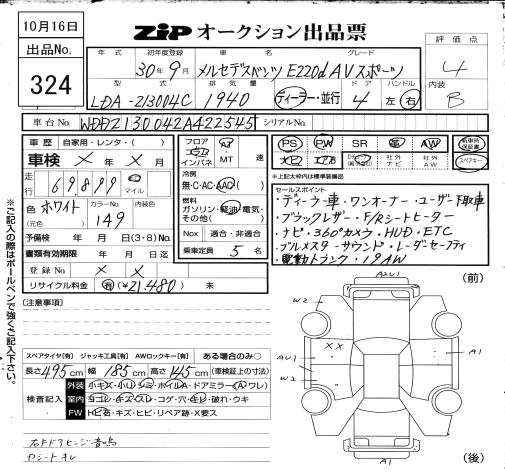 10月16日
ZiP オークション出品票
出品No.
324
年式 初年度登録 車名 グレード
30年9月 メルセデスベンツ E220d AVスポーツ
型式 排気量 ドア ハンドル
LDA-213004C 1940 ディーラー・並行 4 左・右
評価点
4
内装
B
車台No. WDDZ130042A422545 シリアルNo.
車歴 自家用・レンタ・( )
車検 × 年 × 月
走行 69,899 マイル
色 ホワイト カラーNo. 149
(元色)
予備検 年 月 日(3・8)No.
書類有効期限 年 月 日迄
登録No. × ×
リサイクル料金 有(¥21,480) 未
フロア AT 速
コラム
インパネ MT
冷房
無・C・AC・AAC( )
燃料
ガソリン・軽油・電気・
その他( )
Nox 適合・非適合
乗車定員 5 名
PS PW SR 革 AW 新車時保証書
ナビ エアB 社外ナビ 社外AW スペアキー
*上記太枠内は標準装備品
セールスポイント
・ディーラー車・ワンオーナー・ユーザー下取車
・ブラックレザー・F/Rシートヒーター
・ナビ・360°カメラ・HUD・ETC
・ブルメスターサウンド・レーダーセーフティ
・電動トランク・19AW
※ご記入の際はボールペンで強くご記入下さい。
[注意事項]
スペアタイヤ[有] ジャッキ工具[有] AWロックキー[有] ある場合のみ○
長さ 495cm 幅 185cm 高さ 145cm (車検証上の寸法)
検査記入
外装 小キズ・小リ・シミ・ホイルA・ドアミラー(A・ワレ)
室内 ヨゴレ・キズ・スレ・コゲ・穴・キレ・破れ・ウキ
FW トビ石・キズ・ヒビ・リペア跡・X要ス
右ドアヒンジ音鳴
Dシートキレ
(前)
A2U1
W2
××
AU1
W2
A1
A1
(後)